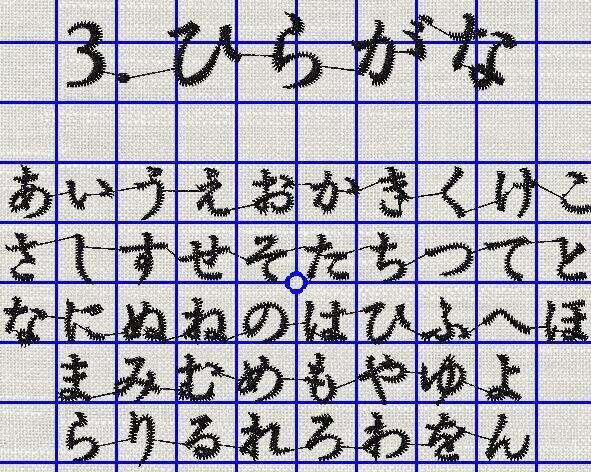 3.ひらがな
あいうえおかきくけこ
さしすせそたちつてと
なにぬねのはひふへほ
まみむめもやゆよ
らりるれろわをん